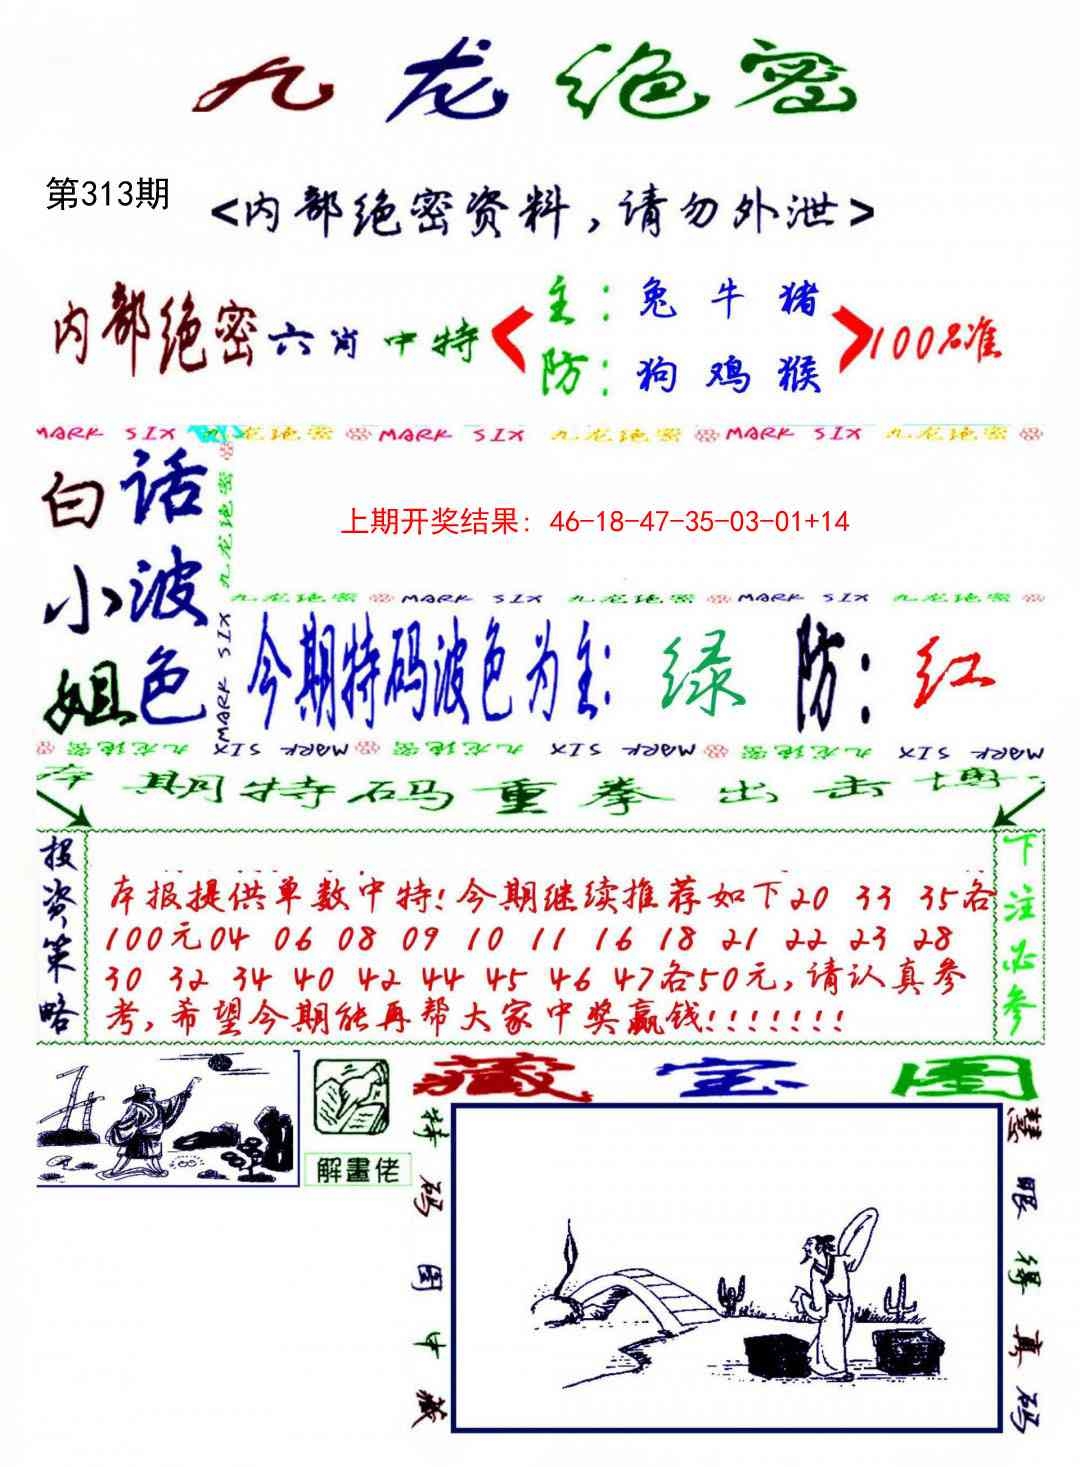 九龙绝密
第313期
<内部绝密资料，请勿外泄>
内部绝密六肖中特
主：兔 牛 猪
防：狗 鸡 猴
100%准
MARK SIX 九龙绝密 MARK SIX 九龙绝密 MARK SIX 九龙绝密
九龙绝密
MARK SIX
白话
小波
姐色
上期开奖结果：46-18-47-35-03-01+14
九龙绝密 MARK SIX 九龙绝密 MARK SIX 九龙绝密
今期特码波色为主：绿 防：红
九龙绝密 MARK SIX 九龙绝密 MARK SIX 九龙绝密 MARK SIX
本期特码重拳出击博
投资策略
本报提供单数中特!今期继续推荐如下20 33 35各
100元04 06 08 09 10 11 16 18 21 22 23 28
30 32 34 40 42 44 45 46 47各50元,请认真参
考,希望今期能再帮大家中奖赢钱!!!!!!!
下注必参
解畫佬
藏宝图
特码图中藏
慧眼得真码